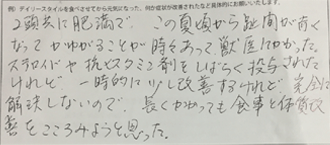 例）デイリースタイルを食べさせてから元気になった、何か症状が改善されたなど具体的にお願いいたします。
2頭共に肥満で、この夏頃から趾間が赤く
なってかゆがることが時々あって獣医にかかった。
ステロイドや抗ヒスタミン剤をしばらく投与された
けれど一時的に少し改善するけれど完全に
解決しないので、長くかかっても食事と体質改
善をこころみようと思った。